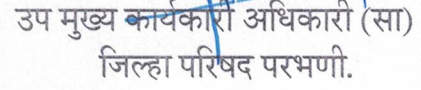 उप मुख्य कार्यकारी अधिकारी (सा)
जिल्हा परिषद परभणी.